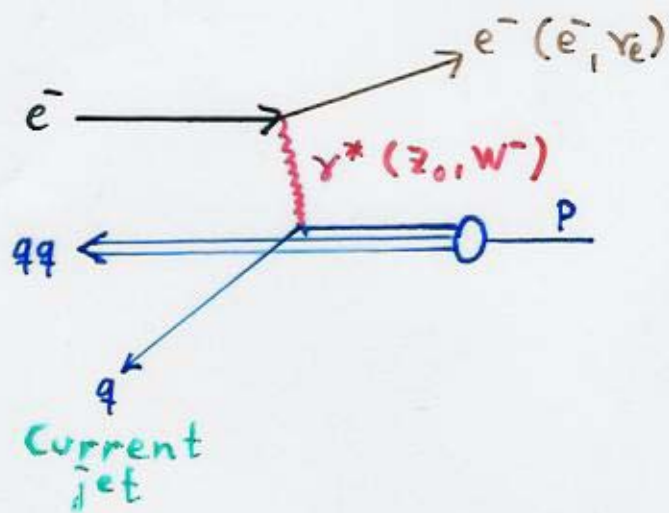 e⁻ (e⁻, νe)
e⁻
γ* (Z₀, W⁻)
P
qq
q
Current
jet